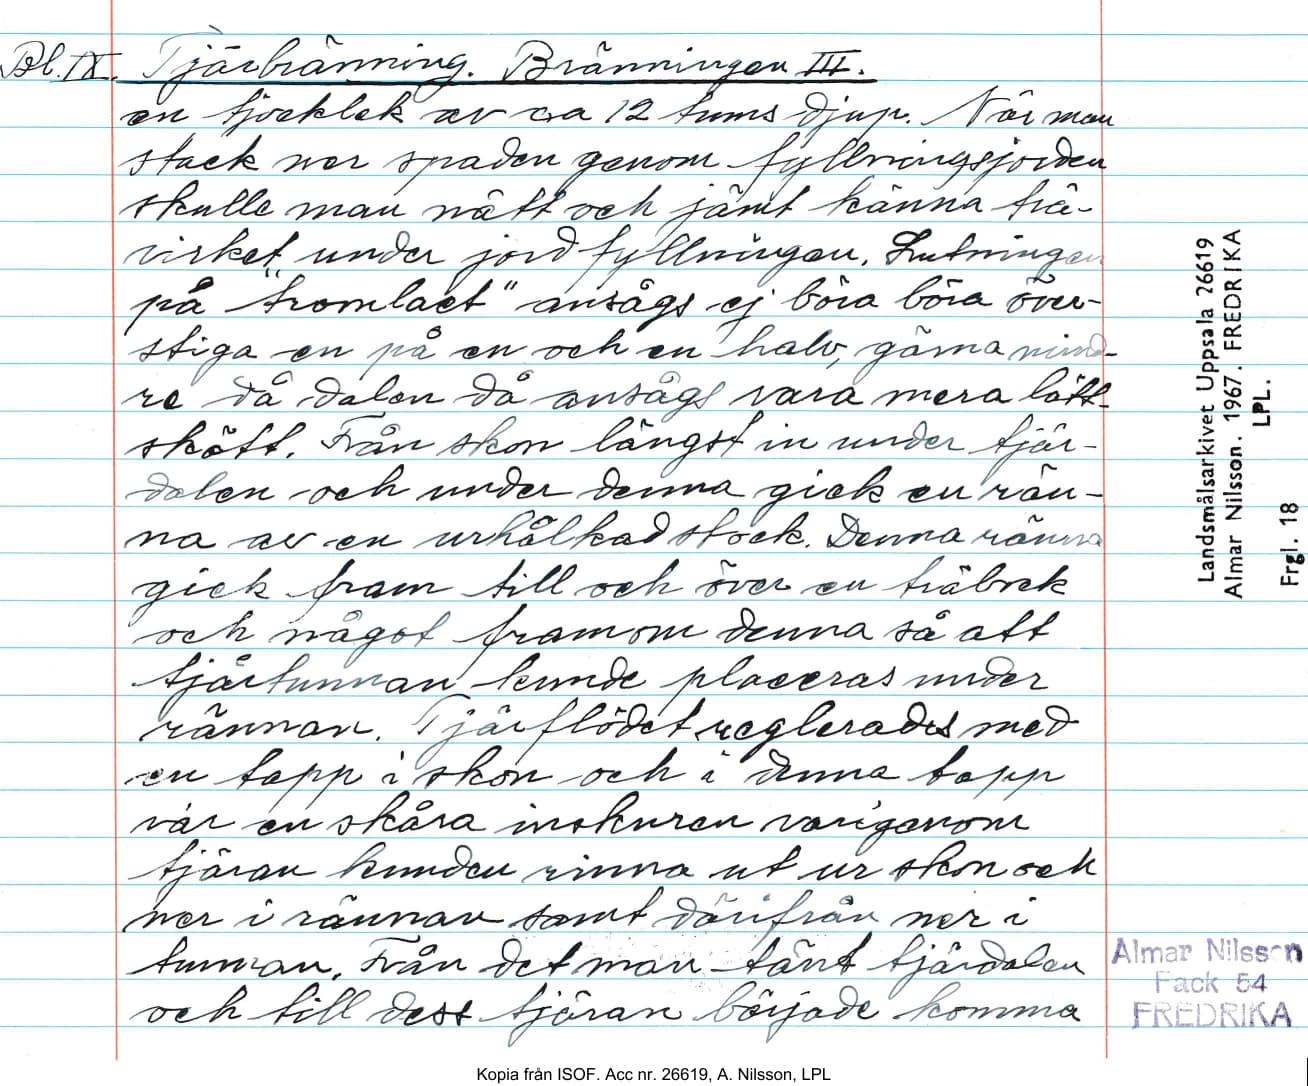 Bl. IX. Tjärbränning. Bränningen III.
en tjocklek av ca 12 tums djup. När man
stack ner spaden genom fyllningsjorden
skulle man nätt och jämt känna trä-
virket under jordfyllningen. Lutningen
på "tromlaet" ansågs ej böra böra över-
stiga en på en och en halv, gärna mind-
re då dalen då ansågs vara mera lätt-
skött. Från skon längst in under tjär-
dalen och under denna gick en rän-
na av en urhålkad stock. Denna ränna
gick fram till och över en träbock
och något framom denna så att
tjärtunnan kunde placeras under
rännan. Tjärflödet reglerades med
en tapp i skon och i denna tapp
var en skåra inskuren varigenom
tjäran kunden rinna ut ur skon och
ner i rännan samt därifrån ner i
tunnan. Från det man tänt tjärdalen
och till dess tjäran började komma
Landsmålsarkivet Uppsala 26619
Almar Nilsson. 1967. FREDRIKA
LPL.
Frgl. 18
Almar Nilsson
Fack 54
FREDRIKA
Kopia från ISOF. Acc nr. 26619, A. Nilsson, LPL